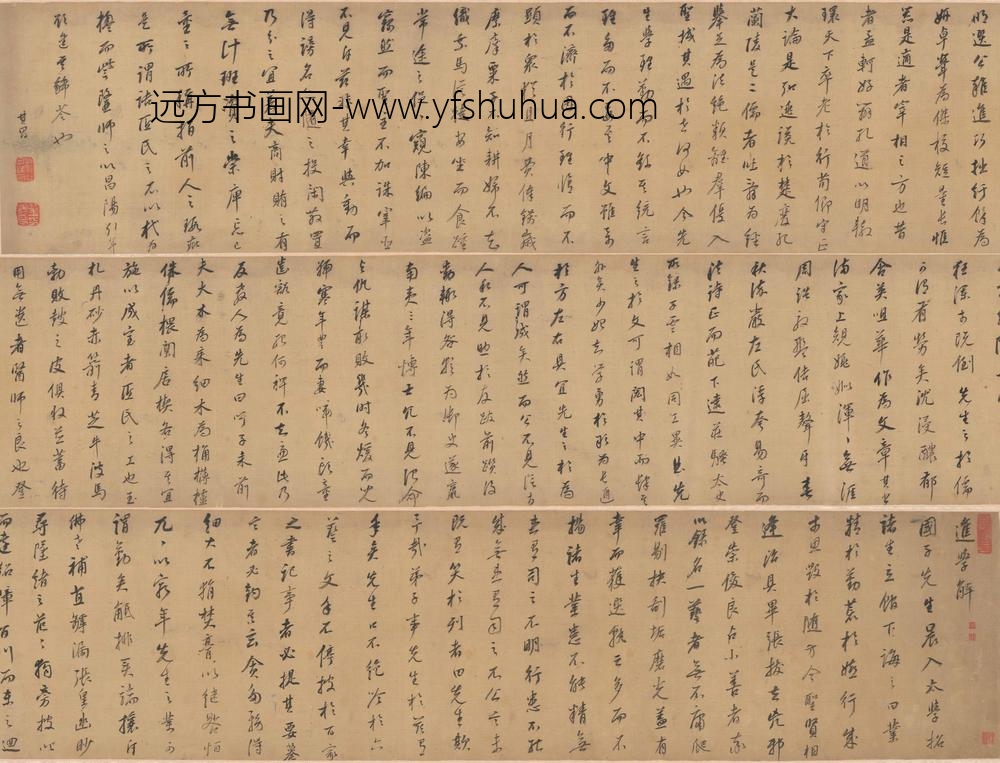 進學解
國子先生晨入太學招
諸生立館下誨之曰業
精於勤荒於嬉行成
於思毀於隨方今聖賢相
逢治具畢張拔去兇邪
登崇俊良占小善者率
以錄名一藝者無不庸爬
羅剔抉刮垢磨光蓋有
幸而獲選孰云多而不
揚諸生業患不能精無
患有司之不明行患不能
成無患有司之不公言未
既有笑於列者曰先生欺
予哉弟子事先生於茲有
年矣先生口不絕吟於六
藝之文手不停披於百家
之書記事者必提其要纂
言者必鈎其玄貪多務得
細大不捐焚膏以繼晷恒
兀兀以窮年先生之業可
謂勤矣觝排異端攘斥
佛老補苴罅漏張皇幽眇
尋墜緒之茫茫獨旁搜以
而遠紹障百川而東之迴
狂瀾於既倒先生之於儒
可謂有勞矣沉浸醲郁
含英咀華作為文章其書
滿家上規姚姒渾渾無涯
周誥殷盤佶屈聱牙春
秋謹嚴左氏浮夸易奇而
法詩正而葩下逮莊騷太史
所錄子雲相如同工異曲先
生之於文可謂閎其中而肆其
外矣少始知學勇於敢為長通
於方左右具宜先生之於為
人可謂成矣然而公不見信於
人私不見助於友跋前躓後
動輒得咎暫為御史遂竄
南夷三年博士冗不見治命
與仇謀取敗幾時冬煖而兒
號寒年豐而妻啼飢頭童
齒豁竟死何裨不知慮此乃
反教人為先生曰吁子來前
夫大木為杗細木為桷欂櫨
侏儒椳闑扂楔各得其宜
施以成室者匠氏之工也玉
札丹砂赤箭青芝牛溲馬
勃敗鼓之皮俱收並蓄待
用無遺者醫師之良也登
明選公雜進巧拙紆餘為
妍卓犖為傑校短量長惟
器是適者宰相之方也昔
者孟軻好辯孔道以明轍
環天下卒老於行荀卿守正
大論是弘逃讒於楚廢死
蘭陵是二儒者吐辭為經
舉足為法絕類離群優入
聖域其遇於世何如也今先
生學雖勤而不繇其統言
雖多而不要其中文雖奇
而不濟於用行雖修而不
顯於眾猶且月費俸錢歲
靡廩粟子不知耕婦不知
織乘馬從徒安坐而食踵
常途之促促窺陳編以盜
竊然而聖主不加誅宰臣
不見斥茲非其幸與動而
得謗名亦隨之投閒散置
乃分之宜若夫商財賄之有
無計班資之崇庳忘己
量之所稱指前人之瑕疵
是所謂詰匠氏之不以杙為
楹而訾醫師之以昌陽引年
欲進其豨苓也
其昌
远方书画网-www.yfshuhua.com